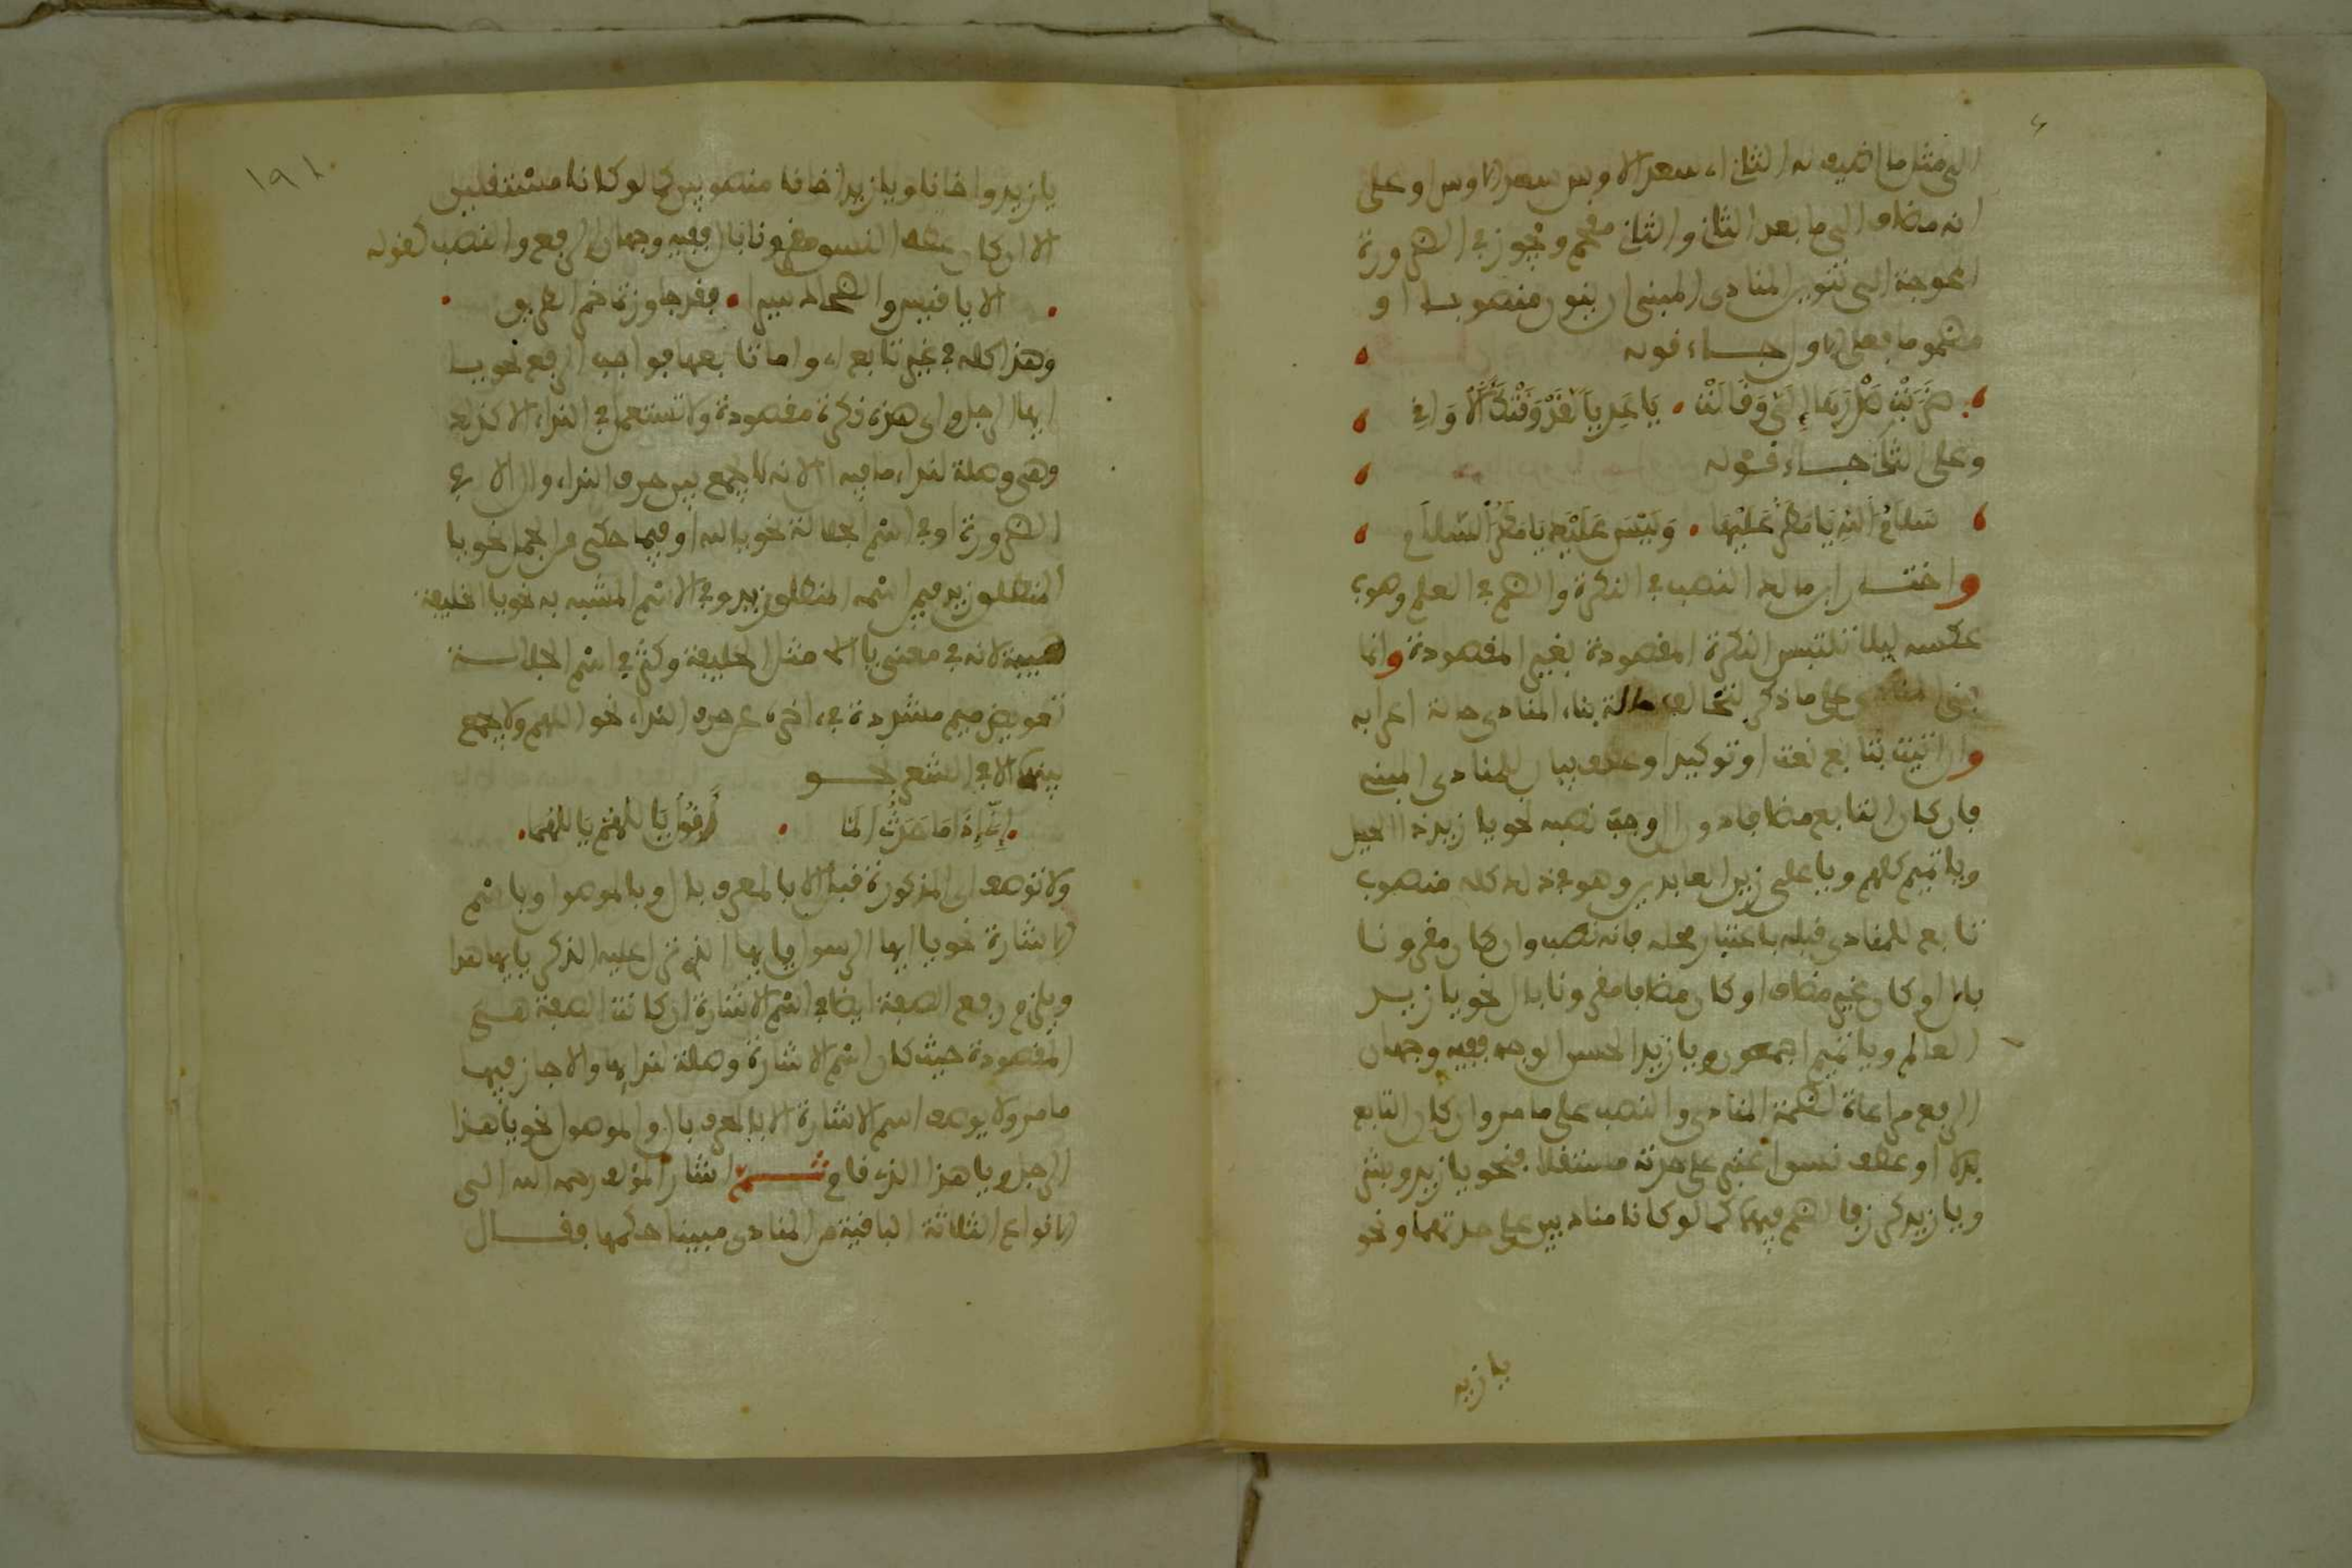 الى مثل ما اضيف له الثانى، سعد الاوس سعد الاوس او على
انه مضاف الى ما بعد الثانى والثانى مقحم ويجوز فى الضرورة
المحوجة الى تنوين المنادى المبنى ان ينون منصوبا او
مضموما فعلى الاول جاء قوله
ضَرَبَتْ صَدْرَهَا إِلَيَّ وَقَالَتْ يَا عَدِيًّا لَقَدْ وَقَتْكَ الأَوَاقِى
وعلى الثانى جاء قوله
سَلاَمُ اللهِ يَا مَطَرٌ عَلَيْهَا وَلَيْسَ عَلَيْكَ يَا مَطَرُ السَّلاَم
واختار ابن مالك النصب فى النكرة والضم فى العلم وهو
عكسه ليلا تلتبس النكرة المقصودة بغير المقصودة وانما
بنى المنادى على ما ذكر لتخالف حالة بناء المنادى حالة اعرابه
وان اتيت بتابع نعت او توكيد او عطف بيان للمنادى المبني
فان كان التابع مضافا دون ال وجب نصبه نحو يا زيد ذا الحيل
ويا تميم كلهم ويا على زين العابدين وهو فى ذلك كله منصوب
تابع للمنادى قبله باعتبار محله فانه نصب وان كان مقرونا
بال او كان غير مضاف او كان مضافا مقرونا بال نحو يا زيد
العالم ويا تميم اجمعون ويا زيد الحسن الوجه ففيه وجهان
الرفع مراعاة لضمة المنادى والنصب على ما مر وان كان التابع
بدلا او عطف نسق اعتبر على حدته مستقلا فنحو يا زيد وبشر
ويا زيد كرز فالضم فيهما كما لو كانا مناديين على حدتهما ونحو
يا زيد
١٩١
يا زيد واخانا ويا زيد اخانا منصوبين كما لو كانا مستقلين
الا ان كان عطف النسق مقرونا بال ففيه وجهان الرفع والنصب كقوله
الا يا قيس والضحاك سيرا فقد جاوزتما خمر الطريق
وهذا كله فى غير تابع اى واما تابعها فواجب الرفع نحو يا
ايها الرجل واى هذه نكرة مقصودة ولا تستعمل فى النداء الا كذلك
وهى وصلة لنداء ما فيه ال لانه لا يجمع بين حرف النداء وال الا فى
الضرورة او فى اسم الجلالة نحو يا الله او فيما حكى من الجمل نحو يا
المنطلق زيد فيمن اسمه المنطلق زيد وفى الاسم المشبه به نحو يا الخليفة
هيبة لانه فى معنى يا مثل الخليفة وكثر فى اسم الجلالة
تعويض ميم مشددة فى اخره عن حرف النداء نحو اللهم ولا يجمع
بينهما الا فى الشعر نحو
إِنِّي إِذَا مَا حَدَثٌ أَلَمَّا أَقُولُ يَا للهُمَّ يَا للهُمَا
ولا توصف اى المذكورة قبل الا بالمعرف بال او بالموصول او باسم
الاشارة نحو يا ايها الرسول يا ايها الذى نزل عليه الذكر يا ايها هذا
ويلزم رفع الصفة ايضا فى اسم الاشارة ان كانت الصفة هى
المقصودة حيث كان اسم الاشارة وصلة لندايها والا جاز فيها
ما مر ولا يوصف اسم الاشارة الا بالمعرف بال او الموصول نحو يا هذا
الرجل ويا هذا الذى قام ثم اشار المؤلف رحمه الله الى
الانواع الثلاثة الباقية من المنادى مبينا حكمها فقال